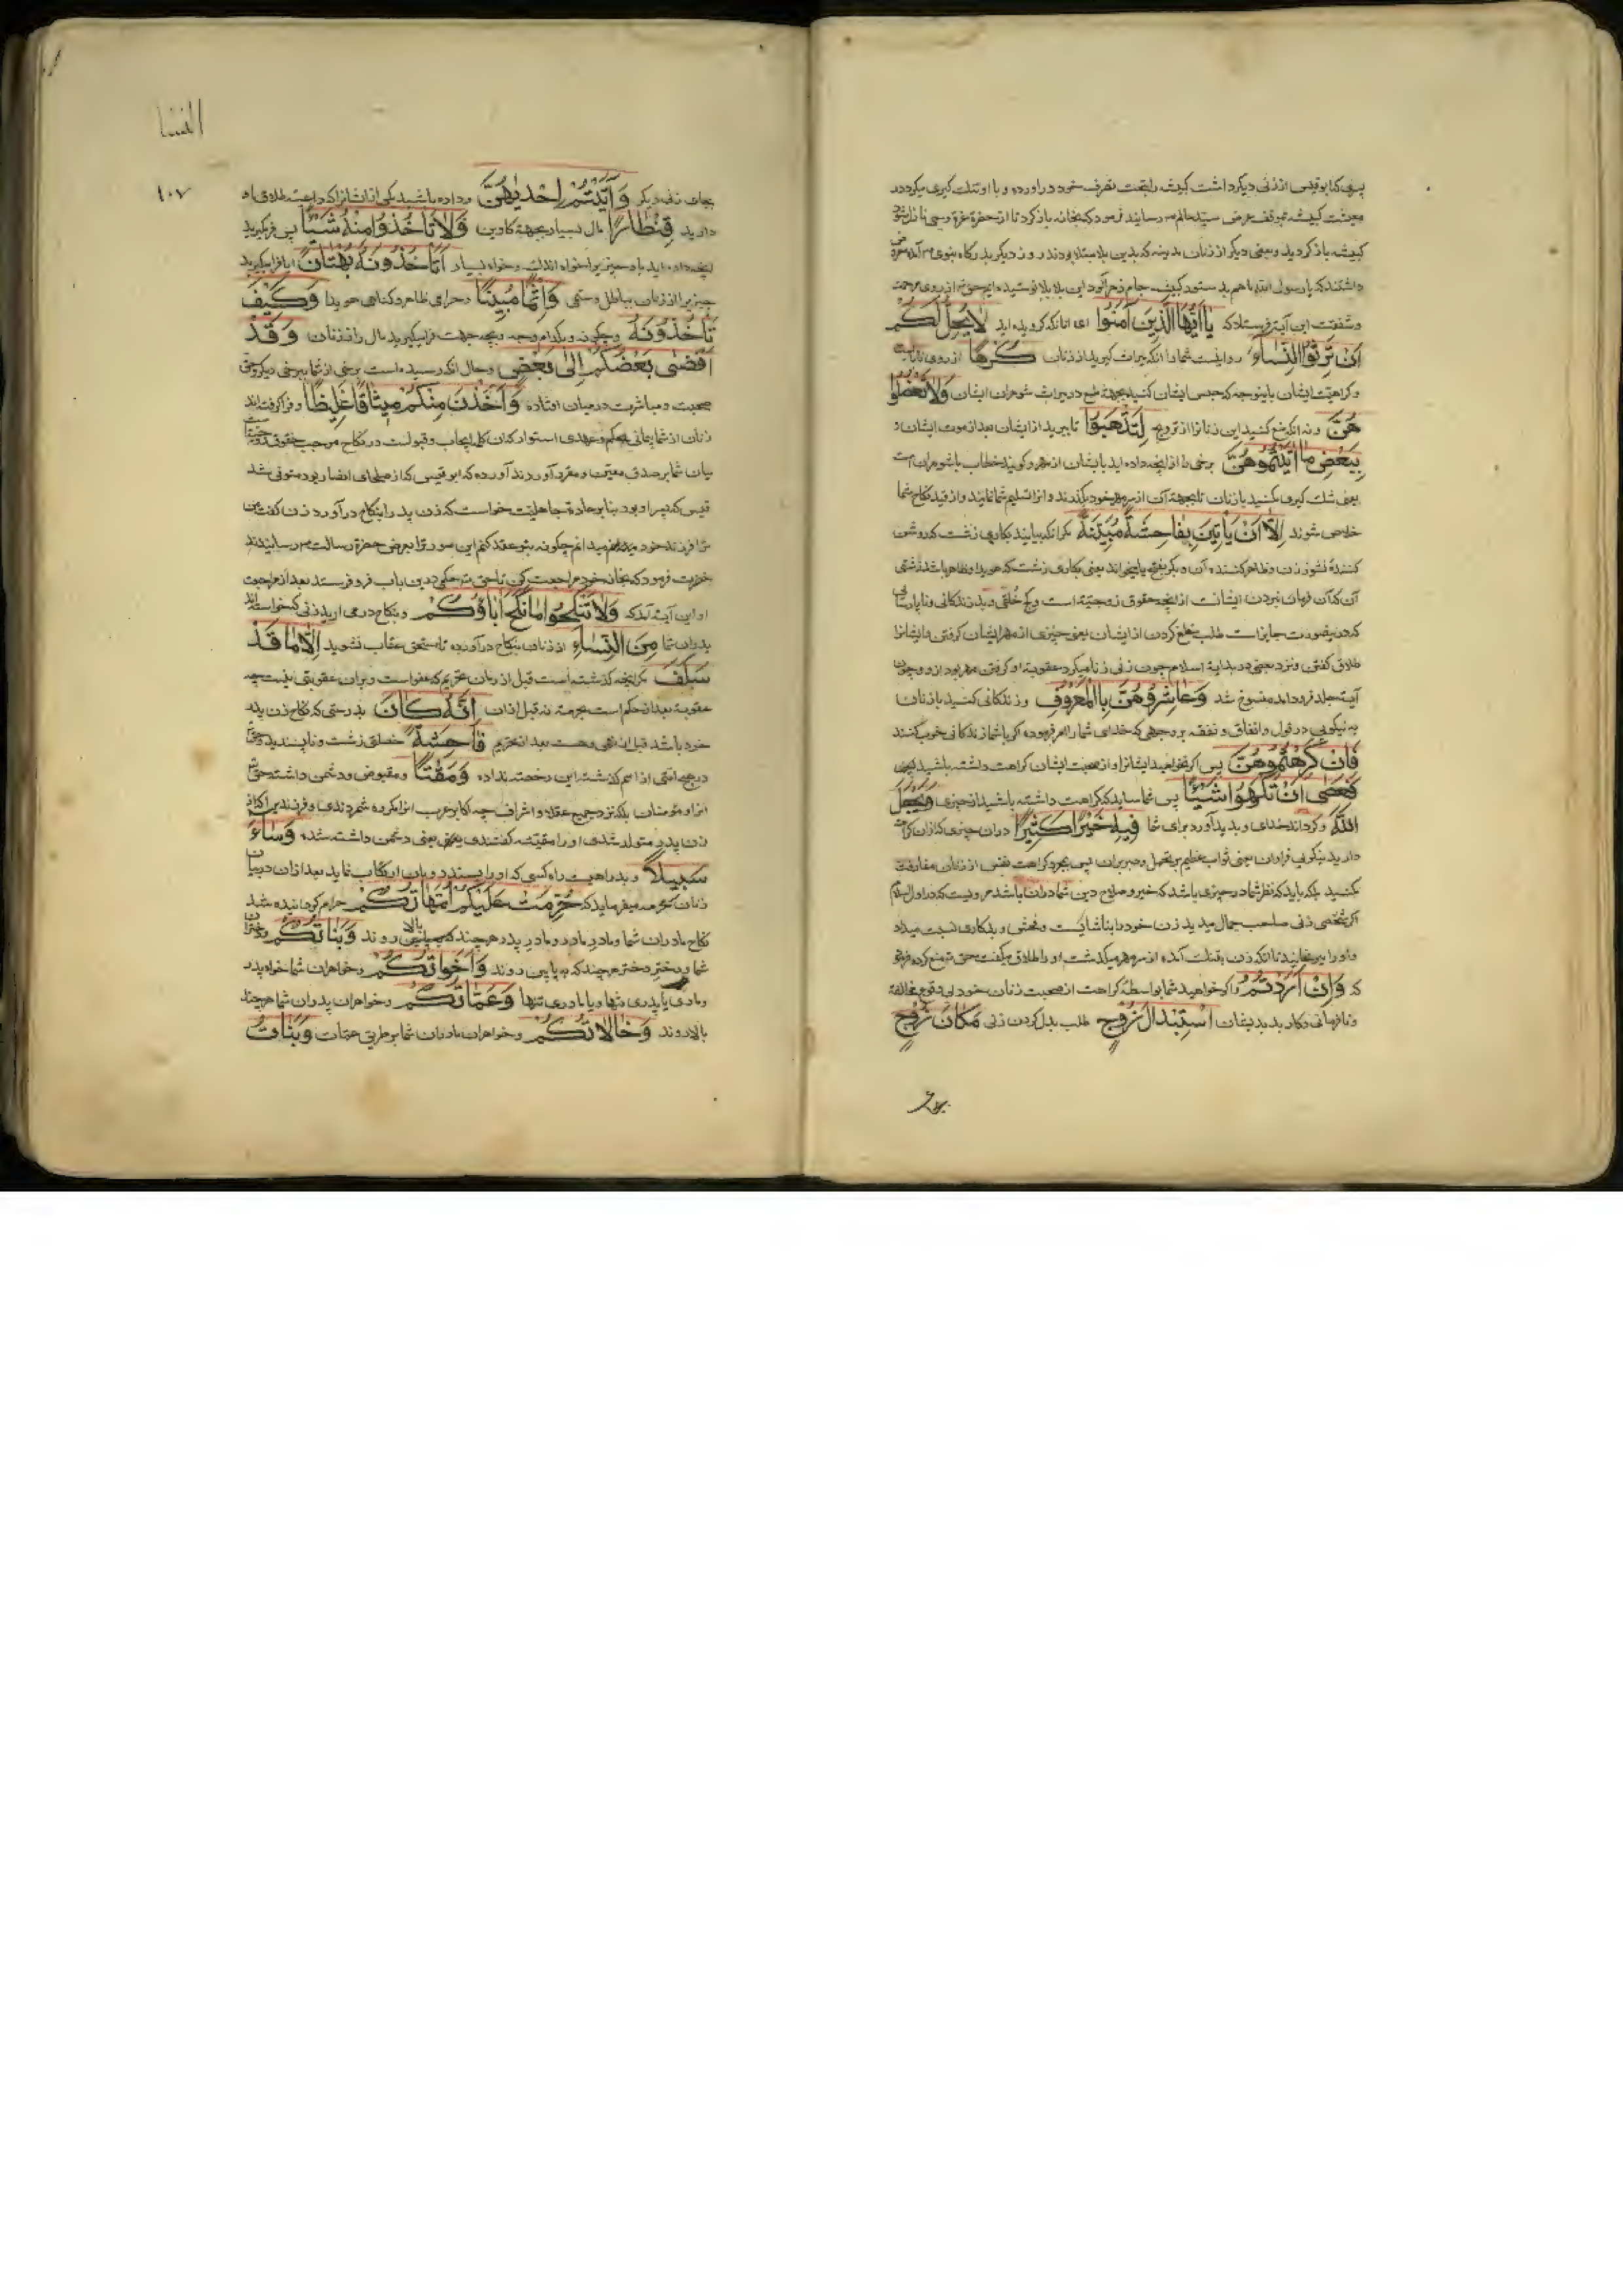 معیشت کبیشه بموقف عرض سید عالم صم رسانیدند فرمود که بخانه باز کرد تا از حضرة عزة وحی نازل شود
کبیشه باز کردید و بعضی دیگر از زنان مدینه که بدین بلا مبتلا بودند روز دیگر بدرگاه نبوی صم آمده معروض
داشتند که یا رسول الله ما هم
و شفقت این آیة فرستاد که یَا اَیُّهَا الَّذینَ آمَنُوا ای آنانکه کرویده اید لَا یَحِلُّ لَکُمْ
اَنْ تَرِثُوا النِّسَاءَ روا نیست شما را انکه بمیراث کیرید از زنان کَرْهًا از روی
و کراهیت ایشان باینوجه که حبس ایشان کنید بجهة طمع در میراث شوهران ایشان وَلَا تَعْضُلُو
هُنَّ و نه انکه منع کنید این زنانرا از تزویج لِتَذْهَبُوا تا ببرید از ایشان بعد از موت ایشان
بِبَعْضِ مَا آتَیْتُمُوهُنَّ برخی را از انچه داده اید بایشان از مهر و کویند خطاب با شوهران است
یعنی تنك کیری مکنید با زنان تا بجهة آن از سر مهر خود بکذرند و انرا تسلیم شما نمایند و از قید نکاح شما
خلاص شوند اِلَّا اَنْ یَأْتِینَ بِفَاحِشَةٍ مُبَیِّنَةٍ مکر انکه بیایند بکاری زشت که روشن
کنندهٔ نشوز زن و ظاهر کننده آن
آن که آن فرمان نبردن ایشانست از انچه حقوق زوجیة است و کج خلقی و بد زندکانی و ناپارسائی
که درینصورت جایز است طلب خلع کردن از ایشان یعنی چیزی از مهر ایشان کرفتن و ایشانرا
طلاق کفتن و نزد بعضی در بدایة اسلام چون زنی زنا میکرد عقوبة او کرفتن مهر بود از و و چون
آیة جلد فرود امد منسوخ شد وَعَاشِرُوهُنَّ بِالْمَعْرُوفِ و زندکانی کنید با زنان
به نیکویی در قول و انفاق و نفقه بر وجهی که خدای شما را امر فرموده
فَاِنْ کَرِهْتُمُوهُنَّ پس اکر نخواهید ایشانرا و از صحبت ایشان کراهت داشته باشید
فَعَسَی اَنْ تَکْرَهُوا شَیْئًا پس شاید که کراهت داشته باشید از چیزی وَیَجْعَلَ
اللَّهُ و کرداند خدای و پدید آورد برای شما فِیهِ خَیْرًا کَثِیرًا در ان چیزی که از ان کراهت
دارید نیکویی فراوان یعنی ثواب عظیم بر تحمل و صبر بران پس بمجرد کراهت نفس از زنان مفارقت
مکنید بلکه باید که نظر شما در چیزی باشد که خیر و صلاح دین شما دران باشد مرویست که در اول اسلام
اکر شخصی زنی صاحب جمال میدید زن خود را بناشایست و فحش و بدکاری نسبت میداد
و او را میرنجانید تا انکه زن بتنك آمده از سر مهر میکذشت و او را طلاق میکفت حق تع منع کرده فرمود
که وَاِنْ اَرَدْتُمُ و اکر خواهید شما بواسطهٔ کراهت از صحبت زنان خود بی وقوع مخالفة
و نافرمانی و کار بد بدیشان اسْتِبْدَالَ زَوْجٍ طلب بدل کردن زنی مَکَانَ زَوْجٍ
النسا
۱۰۷
بجای زنی دیکر وَآتَیْتُمْ اِحْدَیهُنَّ و داده باشید یکی از ایشانرا که داعیهٔ طلاق او
دارید قِنْطَارًا مال بسیار بجهة کابین وَلَا تَأْخُذُوا مِنْهُ شَیْئًا پس فرا مکیرید
انچه داده اید باو چیزیرا خواه اندك و خواه بسیار اَتَأْخُذُونَهُ بُهْتَانًا ایا فرا میکیرید
چیزیرا از زنان بباطل و ستم وَاِثْمًا مُبِینًا و حرامی ظاهر و کناهی هویدا وَکَیْفَ
تَأْخُذُونَهُ و چکونه و بکدام وجه و بچه جهت فرا میکیرید مال را از زنان وَقَدْ
اَفْضَی بَعْضُکُمْ اِلَی بَعْضٍ و حال انکه رسیده است برخی از شما ببرخی دیکر
صحبت و مباشرت در میان افتاده وَاَخَذْنَ مِنْکُمْ مِیثَاقًا غَلِیظًا و فرا کرفته اند
زنان از شما پیمانی محکم و عهدی استوار که آن کلمهٔ ایجاب و قبولست در نکاح که موجب حقوق زوجیت
میان شما بر صدق معین و مقرر آورده اند آورده که ابو قیس که از صلحای انصار بود متوفی شد
قیس که پسر او بود بنا بر عادة جاهلیت خواست که زن پدر را بنکاح در آورد زن کفت من
ترا فرزند خود میدانم چکونه بتو عقد کنم این صورترا بعرض حضرة رسالت صم رسانیدند
حضرت فرمود که بخانه خود مراجعت کن تا حق تع حکمی درین باب فرو فرستد بعد از مراجعت
او این آیة آمد که وَلَا تَنْکِحُوا مَا نَکَحَ آبَاؤُکُمْ و بنکاح در می ارید زنی که خواسته اند
پدران شما مِنَ النِّسَاءِ از زنان بنکاح در آورده تا مستحق عقاب نشوید اِلَّا مَا قَدْ
سَلَفَ مکر انچه کذشته است قبل از زمان تحریم که عفو است و بران عقوبتی نیست چه
عقوبة بعد از حکم است بحرمة نه قبل از ان اِنَّهُ کَانَ بدرستی که نکاح زن پدر
خود باشد قبل از نهی و هست بعد از تحریم فَاحِشَةً خصلتی زشت و ناپسندیده
در هیچ امتی از امم کذشته این رخصت نداده وَمَقْتًا و مبغوض و دشمن داشته حق تع
انرا و مومنان بلکه نزد جمیع عقلا و اشراف چه اکابر عرب انرا مکروه شمردندی و فرزندیرا که از
زن پدر متولد شدی او را مقیت کفتندی یعنی دشمن داشته شده وَسَاءَ
سَبِیلًا و بد راهیست راه کسی که او را پسندد و بران ارتکاب نماید بعد از ان در بیان
زنان محرمه میفرماید که حُرِّمَتْ عَلَیْکُمْ اُمَّهَاتُکُمْ حرام کردانیده شد
نکاح مادران شما و مادر مادر و مادر پدر هر چند که ببالا روند وَبَنَاتُکُمْ و دختران
شما و دختر دختر هر چند که به پایین روند وَاَخَوَاتُکُمْ و خواهران شما خواه پدر
و مادری یا پدری تنها و یا مادری تنها وَعَمَّاتُکُمْ و خواهران پدران شما هر چند
بالا روند وَخَالَاتُکُمْ و خواهران مادران شما بر طریق عمات وَبَنَاتُ